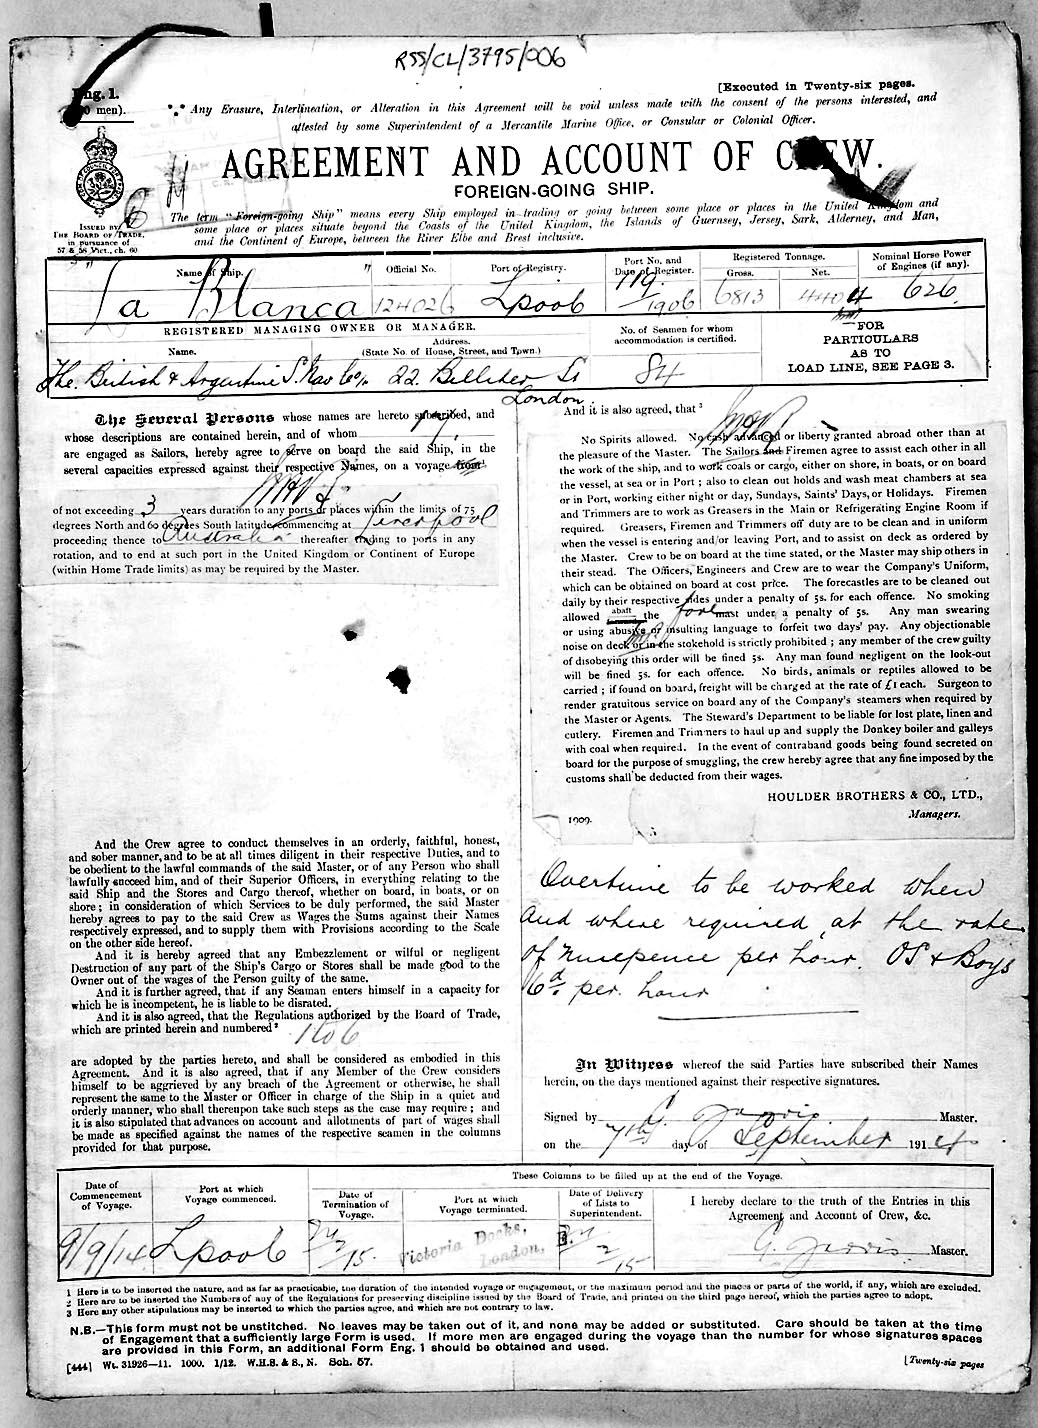 RSS/CL/3795/006
Eng. 1.
[Executed in Twenty-six pages.
Any Erasure, Interlineation, or Alteration in this Agreement will be void unless made with the consent of the persons interested, and
attested by some Superintendent of a Mercantile Marine Office, or Consular or Colonial Officer.
AGREEMENT AND ACCOUNT OF CREW.
FOREIGN-GOING SHIP.
ISSUED BY
THE BOARD OF TRADE,
in pursuance of
57 & 58 Vict., ch. 60
The term "Foreign-going Ship" means every Ship employed in trading or going between some place or places in the United Kingdom and
some place or places situate beyond the Coasts of the United Kingdom, the Islands of Guernsey, Jersey, Sark, Alderney, and Man,
and the Continent of Europe, between the River Elbe and Brest inclusive.
Name of Ship. Official No. Port of Registry. Port No. and Date of Register. Registered Tonnage. Gross. Net. Nominal Horse Power of Engines (if any).
"La Blanca" 124026 Lpool 119/1906 6813 4404 626
REGISTERED MANAGING OWNER OR MANAGER.
Name. Address. (State No. of House, Street, and Town.)
No. of Seamen for whom accommodation is certified.
FOR PARTICULARS AS TO LOAD LINE, SEE PAGE 3.
The British & Argentine S. Nav Co 22 Billiter St London 84
The Several Persons whose names are hereto subscribed, and
whose descriptions are contained herein, and of whom
are engaged as Sailors, hereby agree to serve on board the said Ship, in the
several capacities expressed against their respective Names, on a voyage from
of not exceeding 3 years duration to any ports or places within the limits of 75
degrees North and 60 degrees South latitude commencing at Liverpool
proceeding thence to Australia thereafter trading to ports in any
rotation, and to end at such port in the United Kingdom or Continent of Europe
(within Home Trade limits) as may be required by the Master.
And the Crew agree to conduct themselves in an orderly, faithful, honest,
and sober manner, and to be at all times diligent in their respective Duties, and to
be obedient to the lawful commands of the said Master, or of any Person who shall
lawfully succeed him, and of their Superior Officers, in everything relating to the
said Ship and the Stores and Cargo thereof, whether on board, in boats, or on
shore; in consideration of which Services to be duly performed, the said Master
hereby agrees to pay to the said Crew as Wages the Sums against their Names
respectively expressed, and to supply them with Provisions according to the Scale
on the other side hereof.
And it is hereby agreed that any Embezzlement or wilful or negligent
Destruction of any part of the Ship's Cargo or Stores shall be made good to the
Owner out of the wages of the Person guilty of the same.
And it is further agreed, that if any Seaman enters himself in a capacity for
which he is incompetent, he is liable to be disrated.
And it is also agreed, that the Regulations authorized by the Board of Trade,
which are printed herein and numbered² 1 to 6
are adopted by the parties hereto, and shall be considered as embodied in this
Agreement. And it is also agreed, that if any Member of the Crew considers
himself to be aggrieved by any breach of the Agreement or otherwise, he shall
represent the same to the Master or Officer in charge of the Ship in a quiet and
orderly manner, who shall thereupon take such steps as the case may require; and
it is also stipulated that advances on account and allotments of part of wages shall
be made as specified against the names of the respective seamen in the columns
provided for that purpose.
And it is also agreed, that ³
No Spirits allowed. No cash advanced or liberty granted abroad other than at
the pleasure of the Master. The Sailors and Firemen agree to assist each other in all
the work of the ship, and to work coals or cargo, either on shore, in boats, or on board
the vessel, at sea or in Port; also to clean out holds and wash meat chambers at sea
or in Port, working either night or day, Sundays, Saints' Days, or Holidays. Firemen
and Trimmers are to work as Greasers in the Main or Refrigerating Engine Room if
required. Greasers, Firemen and Trimmers off duty are to be clean and in uniform
when the vessel is entering and/or leaving Port, and to assist on deck as ordered by
the Master. Crew to be on board at the time stated, or the Master may ship others in
their stead. The Officers, Engineers and Crew are to wear the Company's Uniform,
which can be obtained on board at cost price. The forecastles are to be cleaned out
daily by their respective sides under a penalty of 5s. for each offence. No smoking
allowed abaft the foremast under a penalty of 5s. Any man swearing
or using abusive or insulting language to forfeit two days' pay. Any objectionable
noise on deck or in the stokehold is strictly prohibited; any member of the crew guilty
of disobeying this order will be fined 5s. Any man found negligent on the look-out
will be fined 5s. for each offence. No birds, animals or reptiles allowed to be
carried; if found on board, freight will be charged at the rate of £1 each. Surgeon to
render gratuitous service on board any of the Company's steamers when required by
the Master or Agents. The Steward's Department to be liable for lost plate, linen and
cutlery. Firemen and Trimmers to haul up and supply the Donkey boiler and galleys
with coal when required. In the event of contraband goods being found secreted on
board for the purpose of smuggling, the crew hereby agree that any fine imposed by the
customs shall be deducted from their wages.
HOULDER BROTHERS & CO., LTD.,
Managers.
1909.
Overtime to be worked when
and where required, at the rate
of ninepence per hour. OS & Boys
6d. per hour
In Witness whereof the said Parties have subscribed their Names
herein, on the days mentioned against their respective signatures.
Signed by G. Jarvis Master.
on the 7th day of September 1914
These Columns to be filled up at the end of the Voyage.
Date of Commencement of Voyage. Port at which Voyage commenced. Date of Termination of Voyage. Port at which Voyage terminated. Date of Delivery of Lists to Superintendent. I hereby declare to the truth of the Entries in this Agreement and Account of Crew, &c.
9/9/14 Lpool Victoria Docks, London, G. Jarvis Master.
1 Here is to be inserted the nature, and as far as practicable, the duration of the intended voyage or engagement, or the maximum period and the places or parts of the world, if any, which are excluded.
2 Here are to be inserted the Numbers of any of the Regulations for preserving discipline issued by the Board of Trade, and printed on the third page hereof, which the parties agree to adopt.
3 Here any other stipulations may be inserted to which the parties agree, and which are not contrary to law.
N.B.—This form must not be unstitched. No leaves may be taken out of it, and none may be added or substituted. Care should be taken at the time
of Engagement that a sufficiently large Form is used. If more men are engaged during the voyage than the number for whose signatures spaces
are provided in this Form, an additional Form Eng. 1 should be obtained and used.
[444] Wt. 31926—11. 1000. 1/12. W.H.S. & S., N. Sch. 57.
[Twenty-six pages